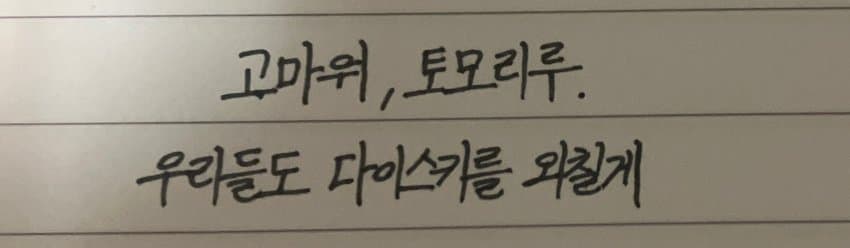 고마워, 토모리루.
우리들도 다이스키를 외칠게